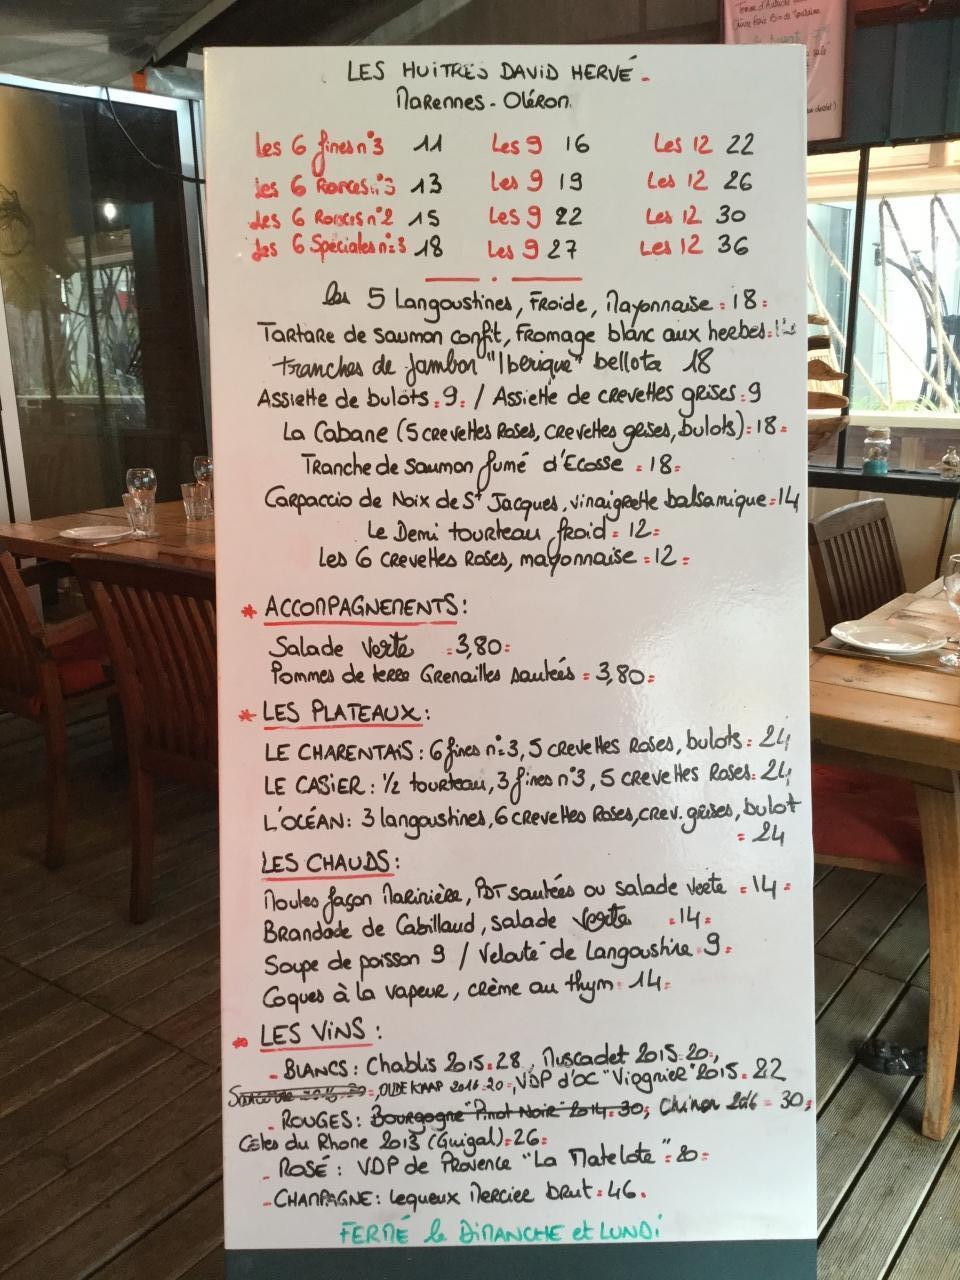 LES HUITRES DAVID HERVÉ.
Marennes - Oléron.
Les 6 fines n°3 11 Les 9 16 Les 12 22
Les 6 Roices n°3 13 Les 9 19 Les 12 26
Les 6 Roices n°2 15 Les 9 22 Les 12 30
Les 6 Spéciales n°3 18 Les 9 27 Les 12 36
Les 5 Langoustines, Froide, Mayonnaise : 18 :
Tartare de saumon confit, Fromage blanc aux herbes :
tranches de jambon "Iberique" bellota 18
Assiette de bulots : 9 : / Assiette de crevettes grises : 9
La Cabane (5 crevettes Roses, crevettes grises, bulots) : 18 :
Tranche de saumon fumé d'Ecosse : 18 :
Carpaccio de Noix de St Jacques, vinaigrette balsamique : 14
Le Demi tourteau froid : 12 :
Les 6 crevettes Roses, mayonnaise : 12 :
* ACCOMPAGNEMENTS :
Salade verte : 3,80 :
Pommes de terre Grenailles sautées : 3,80 :
* LES PLATEAUX :
LE CHARENTAIS : 6 fines n°3, 5 crevettes Roses, bulots : 24
LE CASIER : 1/2 tourteau, 3 fines n°3, 5 crevettes Roses : 24
L'OCÉAN : 3 langoustines, 6 crevettes Roses, crev. grises, bulot
: 24
LES CHAUDS :
Moules façon Marinière, PDT sautées ou salade verte : 14 :
Brandade de Cabillaud, salade verte : 14 :
Soupe de poisson 9 / Velouté de Langoustine : 9 :
Coques à la vapeur, crème au thym : 14 :
* LES VINS :
- BLANCS : Chablis 2015 : 28, Muscadet 2015 : 20,
OUDE KAAP 2016 : 20 :, VDP d'OC "Viognier" 2015 : 22
- ROUGES : Bourgogne "Pinot Noir" 2014 : 30; Chinon 2016 = 30;
Côtes du Rhone 2013 (Guigal) : 26 :
- ROSÉ : VDP de Provence "La Matelote" : 20 :
- CHAMPAGNE : Lequeux Mercier brut : 46.
FERMÉ le DIMANCHE et LUNDI